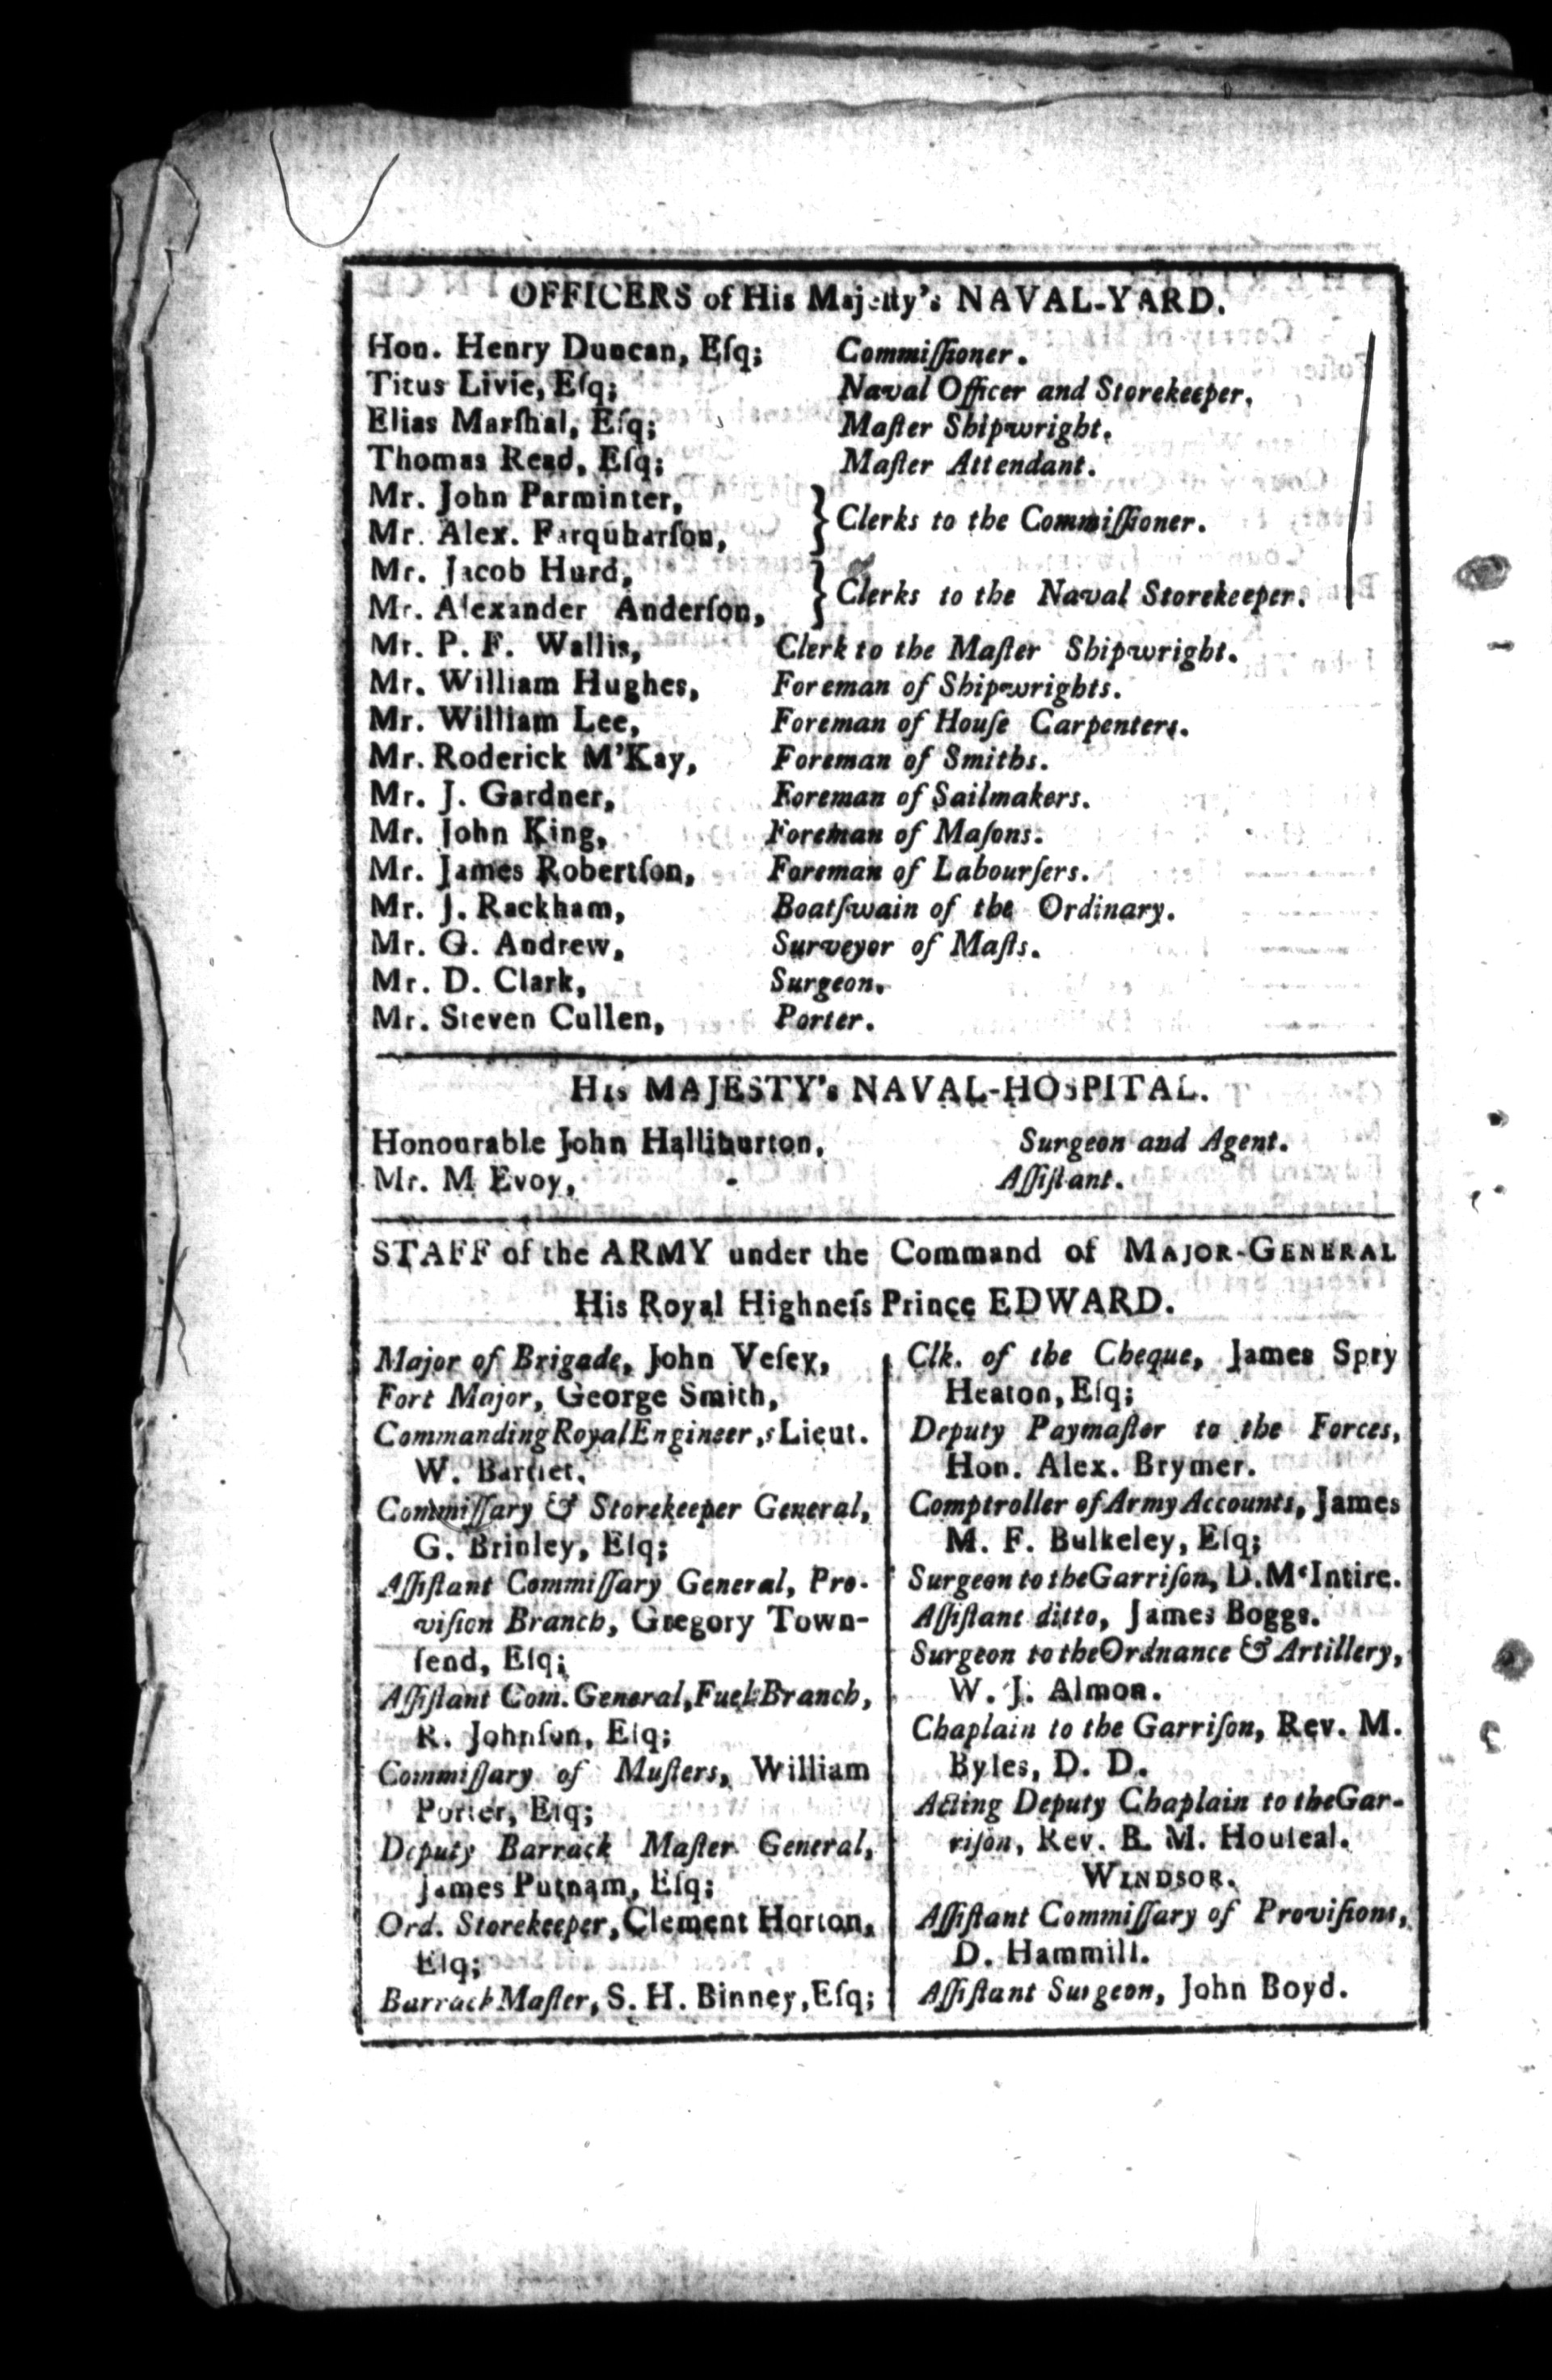 OFFICERS of His Majeſty's NAVAL-YARD.
Hon. Henry Duncan, Eſq; Commiſſioner.
Titus Livie, Eſq; Naval Officer and Storekeeper.
Elias Marſhal, Eſq; Maſter Shipwright.
Thomas Read, Eſq; Maſter Attendant.
Mr. John Parminter,
Mr. Alex. Farquharſon, } Clerks to the Commiſſioner.
Mr. Jacob Hurd,
Mr. Alexander Anderſon, } Clerks to the Naval Storekeeper.
Mr. P. F. Wallis, Clerk to the Maſter Shipwright.
Mr. William Hughes, Foreman of Shipwrights.
Mr. William Lee, Foreman of Houſe Carpenters.
Mr. Roderick M'Kay, Foreman of Smiths.
Mr. J. Gardner, Foreman of Sailmakers.
Mr. John King, Foreman of Maſons.
Mr. James Robertſon, Foreman of Labourſers.
Mr. J. Rackham, Boatſwain of the Ordinary.
Mr. G. Andrew, Surveyor of Maſts.
Mr. D. Clark, Surgeon.
Mr. Steven Cullen, Porter.
His MAJESTY's NAVAL-HOSPITAL.
Honourable John Halliburton, Surgeon and Agent.
Mr. M Evoy, Aſſiſtant.
STAFF of the ARMY under the Command of MAJOR-GENERAL
His Royal Highneſs Prince EDWARD.
Major of Brigade, John Veſey,
Fort Major, George Smith,
Commanding Royal Engineer,s Lieut.
W. Bartlet.
Commiſſary & Storekeeper General,
G. Brinley, Eſq;
Aſſiſtant Commiſſary General, Pro-
viſion Branch, Gregory Town-
ſend, Eſq;
Aſſiſtant Com. General, Fuel Branch,
R. Johnſon, Eſq;
Commiſſary of Muſters, William
Porter, Eſq;
Deputy Barrack Maſter General,
James Putnam, Eſq;
Ord. Storekeeper, Clement Horton,
Eſq;
Barrack Maſter, S. H. Binney, Eſq;
Clk. of the Cheque, James Spry
Heaton, Eſq;
Deputy Paymaſter to the Forces,
Hon. Alex. Brymer.
Comptroller of Army Accounts, James
M. F. Bulkeley, Eſq;
Surgeon to the Garriſon, D. McIntire.
Aſſiſtant ditto, James Boggs.
Surgeon to the Ordnance & Artillery,
W. J. Almon.
Chaplain to the Garriſon, Rev. M.
Byles, D. D.
Acting Deputy Chaplain to the Gar-
riſon, Rev. B. M. Houſeal.
WINDSOR.
Aſſiſtant Commiſſary of Proviſions,
D. Hammill.
Aſſiſtant Surgeon, John Boyd.